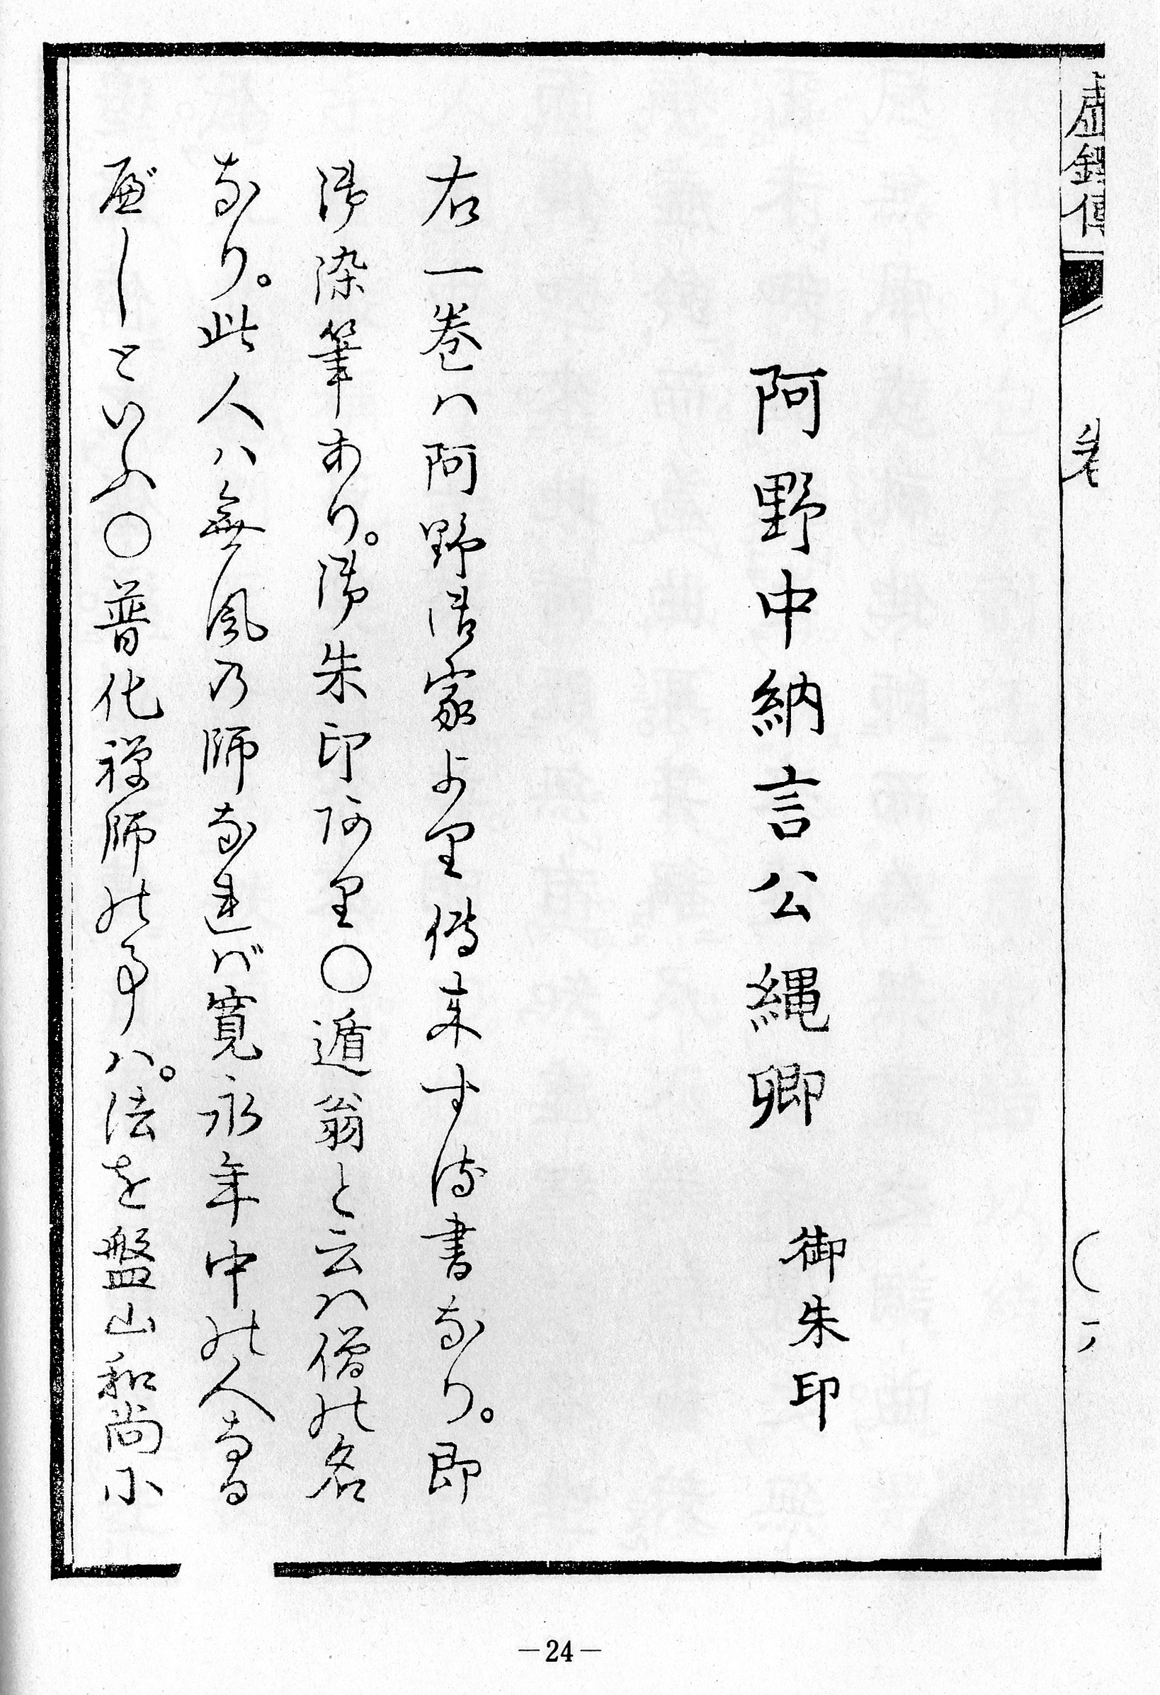 虚鐸傳
巻
阿野中納言公縄卿
御朱印
右一巻ハ阿野御家よ里傳来す所書なり。即
御染筆あり。御朱印阿里〇遁翁と云ハ僧の名
なり。此人ハ無風乃師なれバ寛永年中の人なる
べしといふ〇普化禅師の事ハ。法を盤山和尚に
—24—